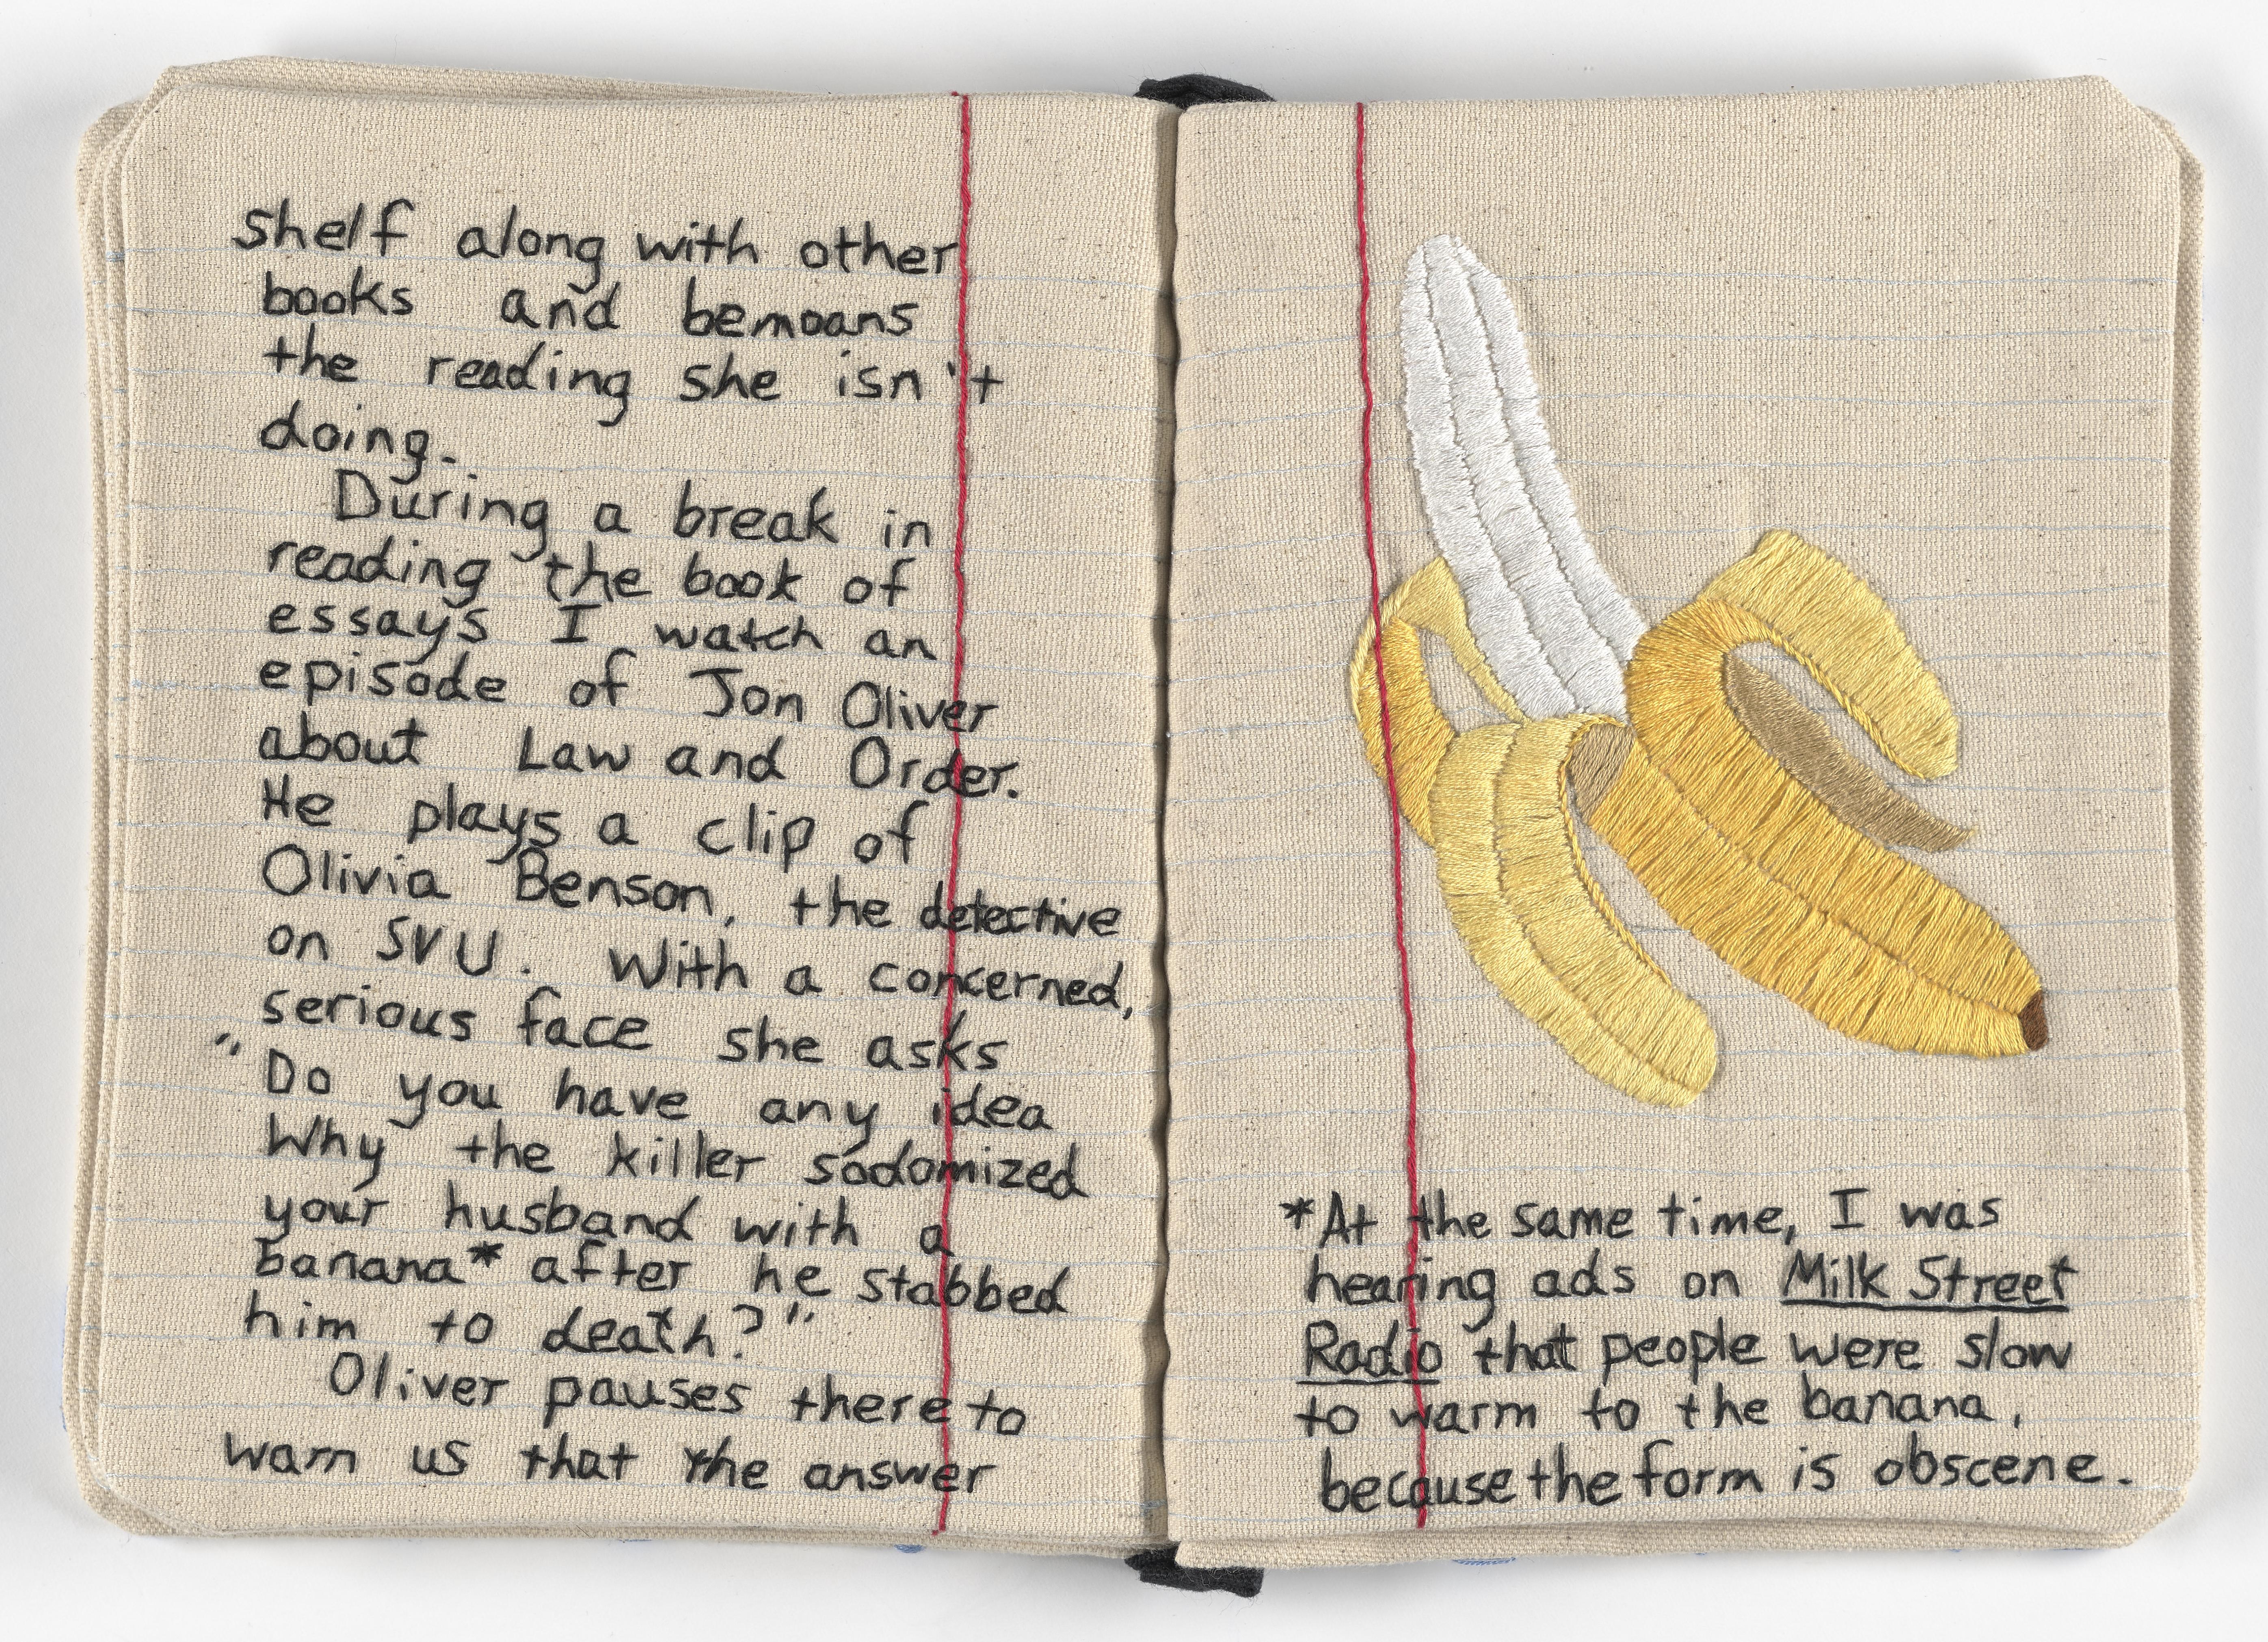 shelf along with other
books and bemoans
the reading she isn't
doing.
During a break in
reading the book of
essays I watch an
episode of Jon Oliver
about Law and Order.
He plays a clip of
Olivia Benson, the detective
on SVU. With a concerned,
serious face she asks
"Do you have any idea
Why the killer sodomized
your husband with a
banana* after he stabbed
him to death?"
Oliver pauses there to
warn us that the answer
*At the same time, I was
hearing ads on Milk Street
Radio that people were slow
to warm to the banana,
because the form is obscene.